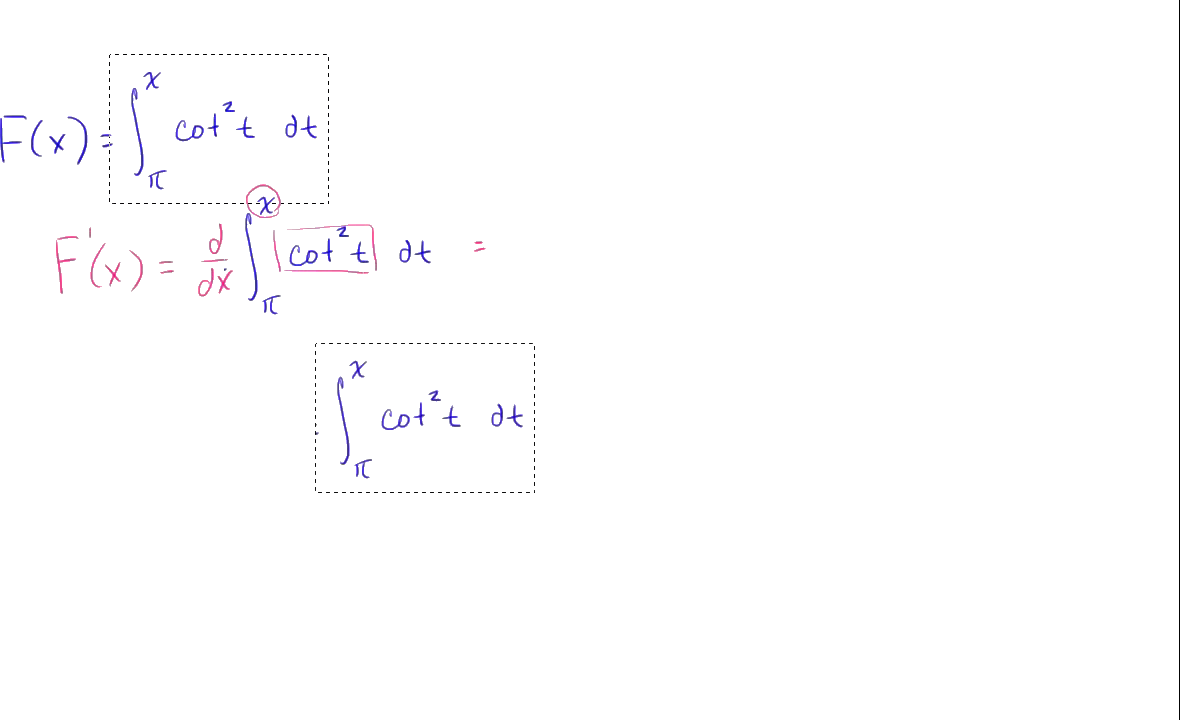 F(x) = ∫_π^x cot² t dt
F'(x) = d/dx ∫_π^x cot² t dt =
∫_π^x cot² t dt